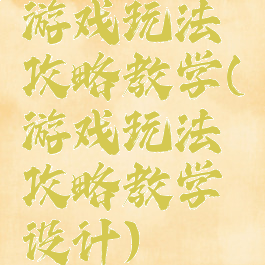 游戏玩法
攻略教学(
游戏玩法
攻略教学
设计)